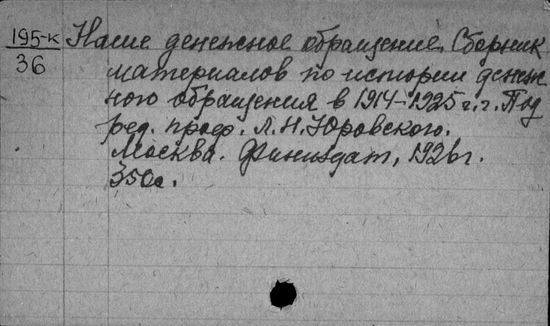 195-к
36
Наше денежное обращение. Сборник
материалов по истории денеж
ного обращения в 1914-1925 г.г. Под
ред. проф. Л.Н. Юровского.
Москва. Финиздат, 1926г.
350с.